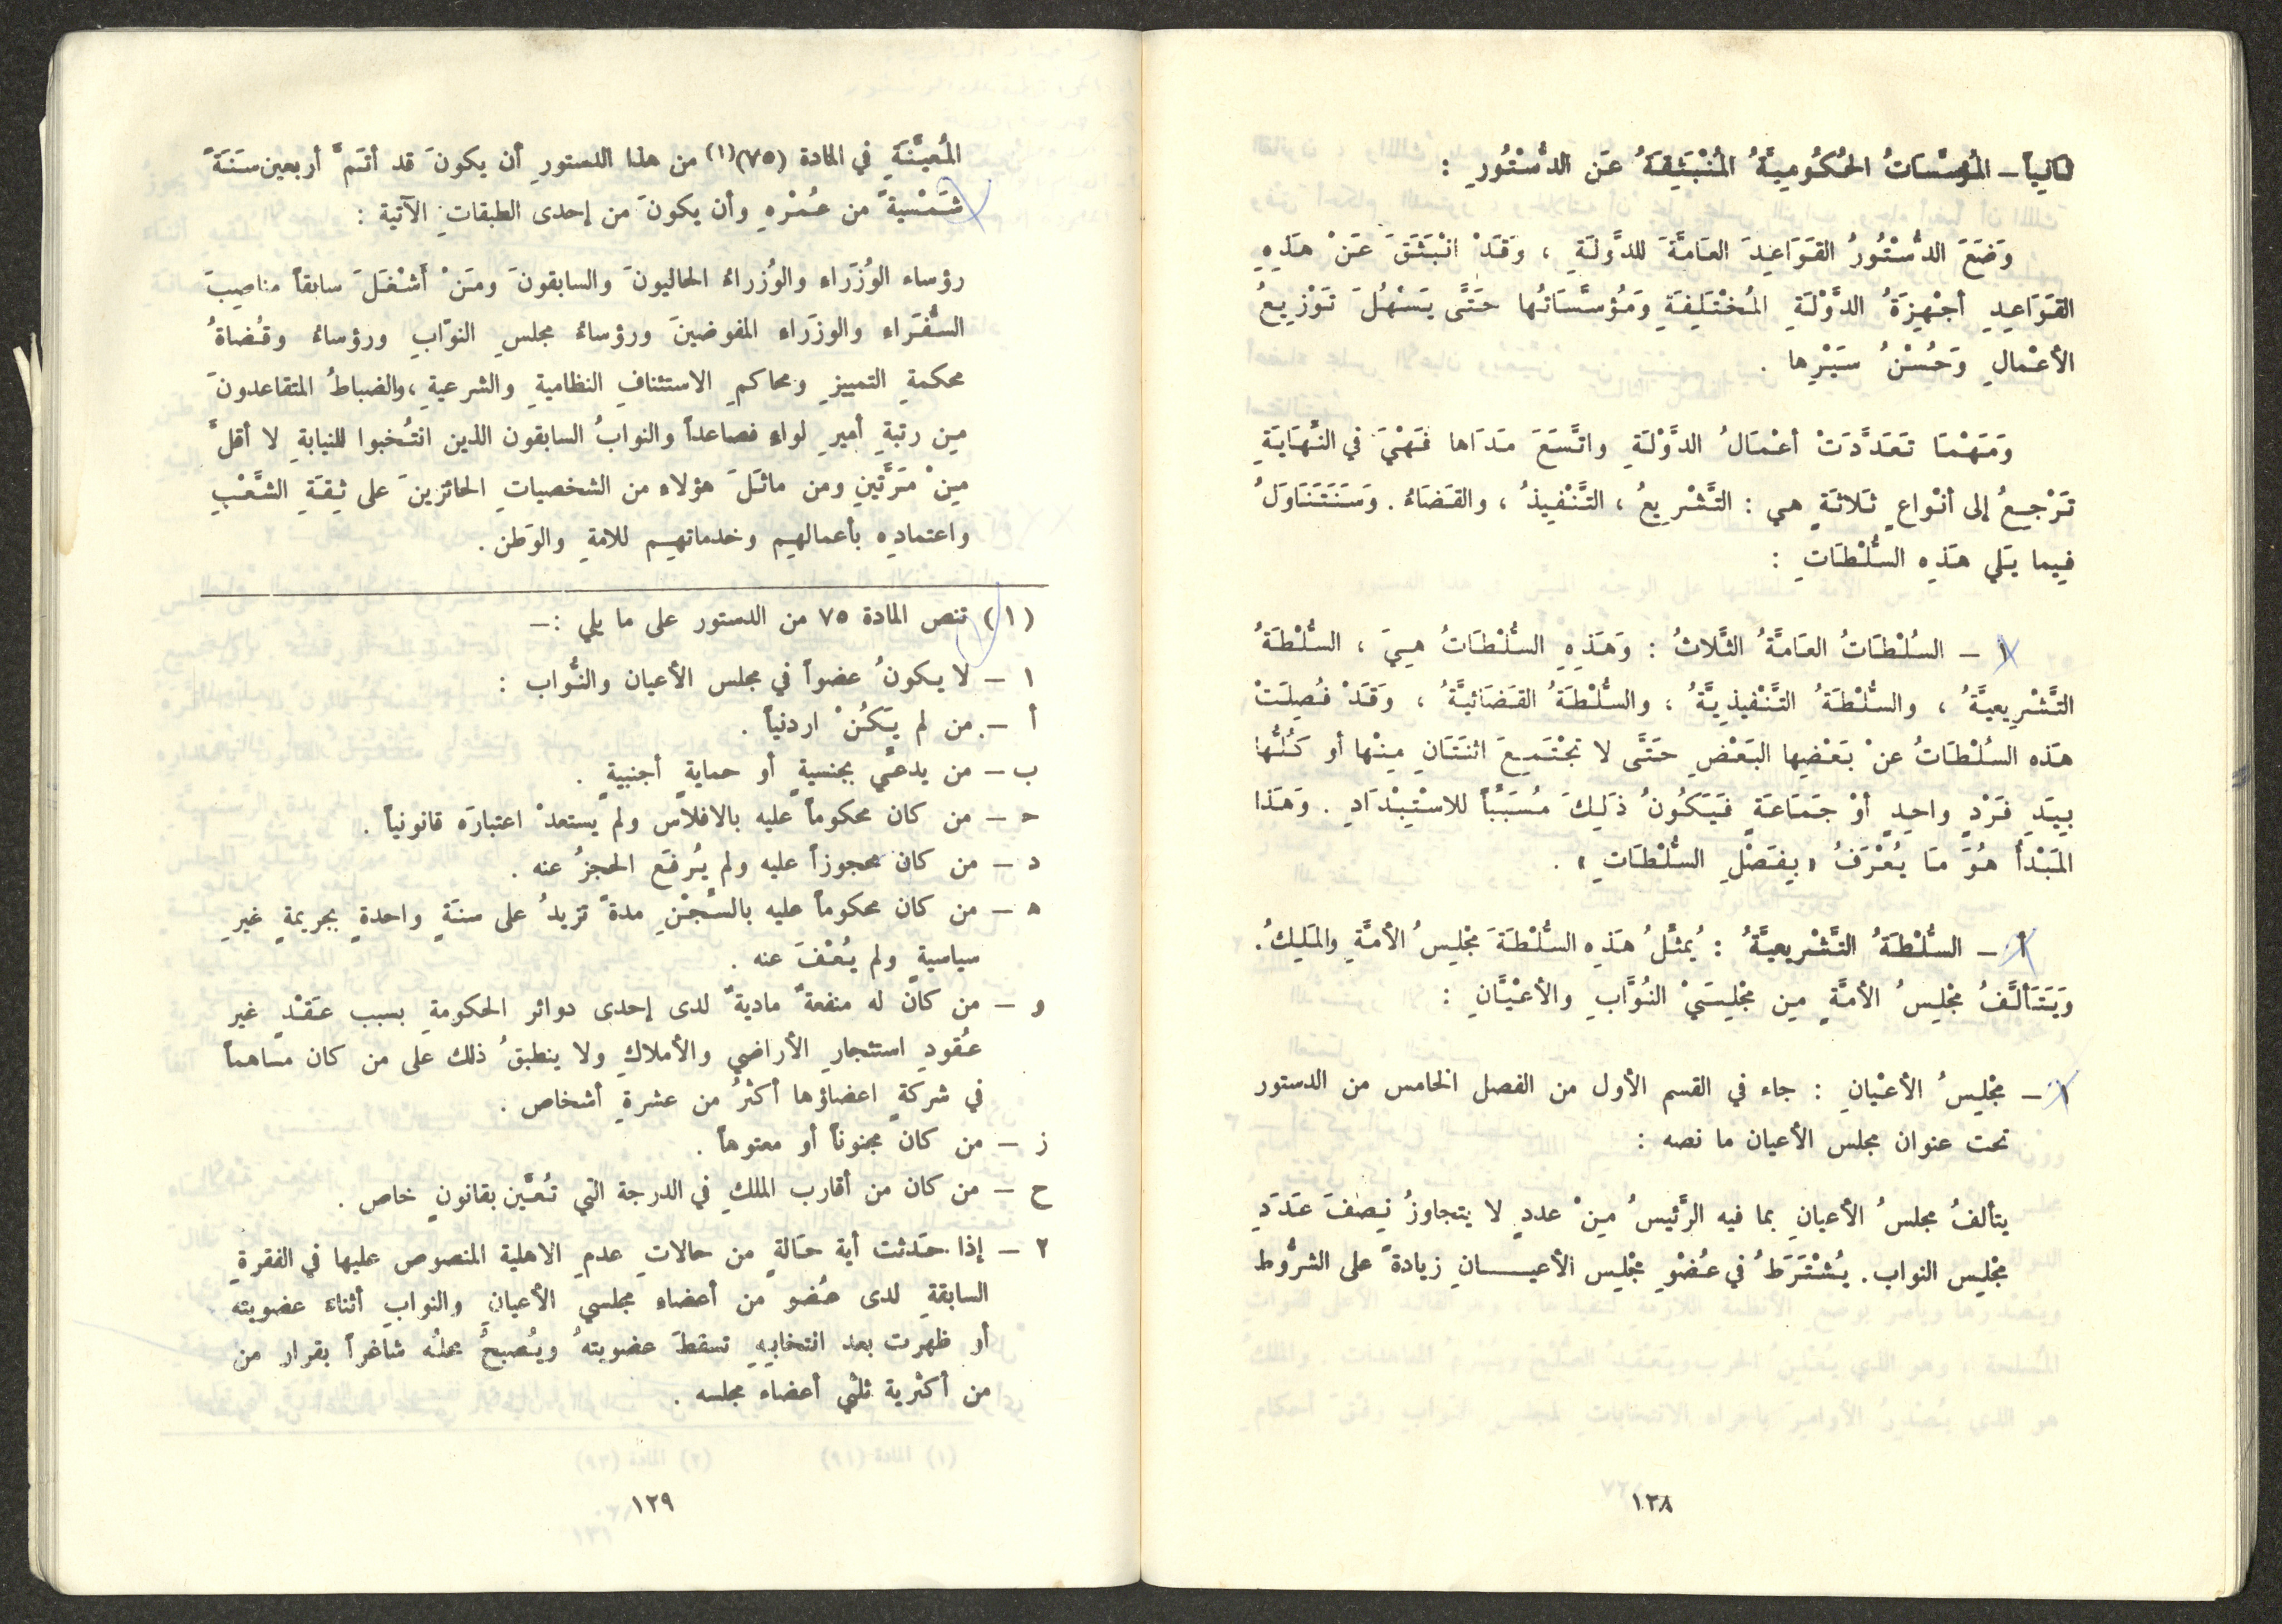 ثانياً – المُؤسَّسَاتُ الحُكُومِيَّةُ المُنْبَثِقَةُ عَن الدُّسْتُورِ :
وَضَعَ الدُّسْتُورُ القَوَاعِدَ العَامَّةَ للدَّولَةِ ، وَقَدْ انْبَثَقَ عَنْ هَذِهِ
القَوَاعِدِ أجْهِزَةُ الدَّوْلَةِ المُخْتَلِفَةِ وَمُؤسَّسَاتُها حتَّى يَسْهُلَ تَوْزِيعُ
الأعْمالِ وَحُسْنُ سَيْرِها .
وَمَهْمَا تَعَدَّدَتْ أعْمَالُ الدَّوْلَةِ واتَّسَعَ مَدَاها فَهْيَ في النِّهَايَةِ
تَرْجِعُ إلى أنْواعٍ ثَلاثَةٍ هي : التَّشْرِيعُ ، التَّنْفِيذُ ، والقَضَاءُ . وَسَنَتَنَاوَلُ
فِيما يَلي هَذِه السُّلْطَاتِ :
١ – السُلْطَاتُ العَامَّةُ الثَّلاثُ : وَهَذِهِ السُّلْطَاتُ هِيَ ، السُّلْطَةُ
التَّشْرِيعيَّةُ ، والسُّلْطَةُ التَّنْفيذِيَّةُ ، والسُّلْطَةُ القَضَائيَّةُ ، وَقَدْ فُصِلَتْ
هَذه السُلْطَاتُ عنْ بَعْضِها البَعْضِ حتَّى لا تَجْتَمِعَ اثنَتَانِ مِنْها أو كُلُّها
بِيَدِ فَرْدٍ واحِدٍ أوْ جَمَاعَةٍ فَيَكُونُ ذَلِكَ مُسَبِّباً للاسْتِبْدَادِ . وَهَذا
المَبْدأ هُوَ مَا يُعْرَفُ « بِفَصْلِ السُّلْطَاتِ » .
أ – السُّلْطَةُ التَّشْريعيَّةُ : يُمثِّلُ هَذِه السُّلْطَةَ مجْلِسُ الأمَّةِ والمَلِكُ.
وَيَتَألَّفُ مجْلِسُ الأمَّةِ مِن مجْلِسَيْ النُوَّابِ والأعْيَّانِ :
١ – مجْلِسُ الأعْيانِ : جاء في القسم الأول من الفصل الخامس من الدستور
تحت عنوان مجلس الأعيان ما نصه :
يتألفُ مجلسُ الأعيانِ بما فيه الرَّئيسُ مِنْ عددٍ لا يتجاوزُ نِصْفَ عَدَدِ
مجْلِس النواب. يُشْتَرَطُ في عُضْوِ مجْلِس الأعيانِ زيادةً على الشرُوط
١٢٨
المُعيَّنَةِ في المادة (٧٥)(١) من هذا الدستورِ أن يكونَ قد أتَمَّ أربعين سَنَةً
شَمْسيةً من عُمْرْهِ وأن يكونَ من إحدى الطبقاتِ الآتية :
رؤساء الوُزَراءِ والوُزراءُ الحاليونَ والسابقونَ ومَنْ أَشْغَلَ سابقاً مناصِبَ
السُّفَراء والوزَراءِ المفوضينَ ورؤساءُ مجلسِ النوّابِ ورؤساءُ وقُضاةُ
محكمةِ التمييزِ ومحاكمِ الاستئنافِ النظاميةِ والشرعيةِ ،والضباطُ المتقاعدونَ
مِن رتبةِ أميرِ لواءٍ فصاعداً والنوابُ السابقون الذين انتُخبوا للنيابةِ لا أقلَّ
مِنْ مَرَّتَينِ ومن ماثَلَ هؤلاءِ من الشخصياتِ الحائزينَ على ثِقَةِ الشَّعْبِ
واعتمادِهِ بأعمالهِم وخدماتهِم للامةِ والوَطن .
(١) تنص المادة ٧٥ من الدستور على ما يلي :–
١ – لا يكونُ عضواً في مجلس الأعيان والنُّواب :
أ – من لم يَكُنْ اردنياً .
ب – من يدعَّي بجنسيةٍ أو حمايةٍ أجنبيةٍ .
ح – من كان محكوماً عليه بالافلاسِ ولم يستعدْ اعتبارَه قانونياً .
د – من كان محجوزاً عليه ولم يُرفَع الحجزُ عنه .
ه – من كان محكوماً عليه بالسَّجْنِ مدةً تزيدُ على سنَةٍ واحدةٍ بجريمةٍ غيرِ
سياسيةٍ ولم يُعْفَ عنه .
و – من كان له منفعةً ماديةً لدى إحدى دوائر الحكومةِ بسبب عَقْدٍ غير
عُقودِ استئجارِ الأراضي والأملاكِ ولا ينطبقُ ذلك على من كان مساهماً
في شركةٍ اعضاؤها أكثرُ من عشرةِ أشخاص .
ز – من كان مجنوناً أو معتوهاً .
ح – من كان من أقارب الملكِ في الدرجة التي تُعيَّن بقانونٍ خاص .
٢ – إذا حَدثت أية حَالةٍ من حالاتِ عدمِ الاهلية المنصوص عليها في الفقرةِ
السابقةِ لدى عُضو من أعضاء مجلسي الأعيانِ والنوابِ أثناءَ عضويته
أو ظهرت بعد انتخابِهِ تسقطَ عضويتهُ ويُصبحُ محلُه شاغراً بقرار من
من أكثرية ثلثي أعضاء مجلسه .
١٢٩